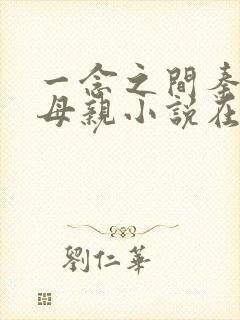 一念之間秦
母親小說在
劉仁華